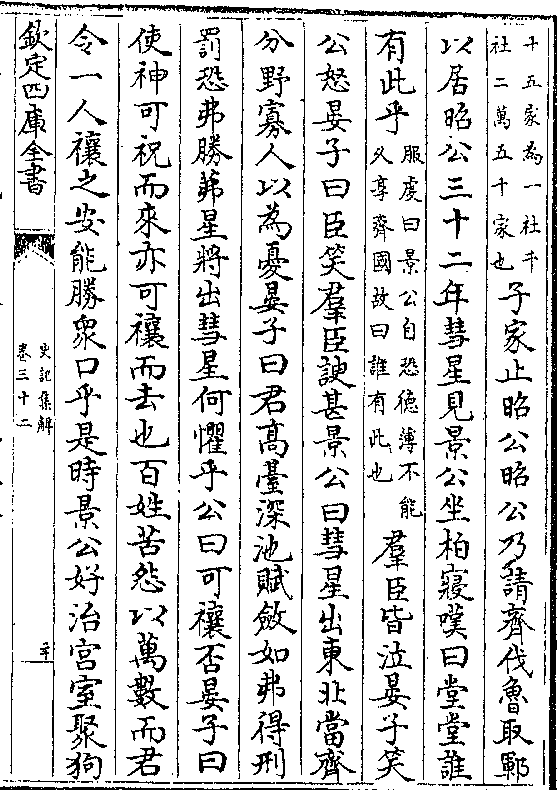 十五家為一社千
社二萬五千家也子家止昭公昭公乃請齊伐魯取鄆
以居昭公三十二年彗星見景公坐柏寢嘆曰堂堂誰
有此乎服虔曰景公自恐德薄不能
久享齊國故曰誰有此也羣臣皆泣晏子笑
公怒晏子曰臣笑羣臣諛甚景公曰彗星出東北當齊
分野寡人以為憂晏子曰君髙臺深池賦斂如弗得刑
罰恐弗勝茀星將出彗星何懼乎公曰可禳否晏子曰
使神可祝而來亦可禳而去也百姓苦怨以萬數而君
令一人禳之安能勝衆口乎是時景公好治宫室聚狗
欽定四庫全書
史記集解
卷三十二
二十